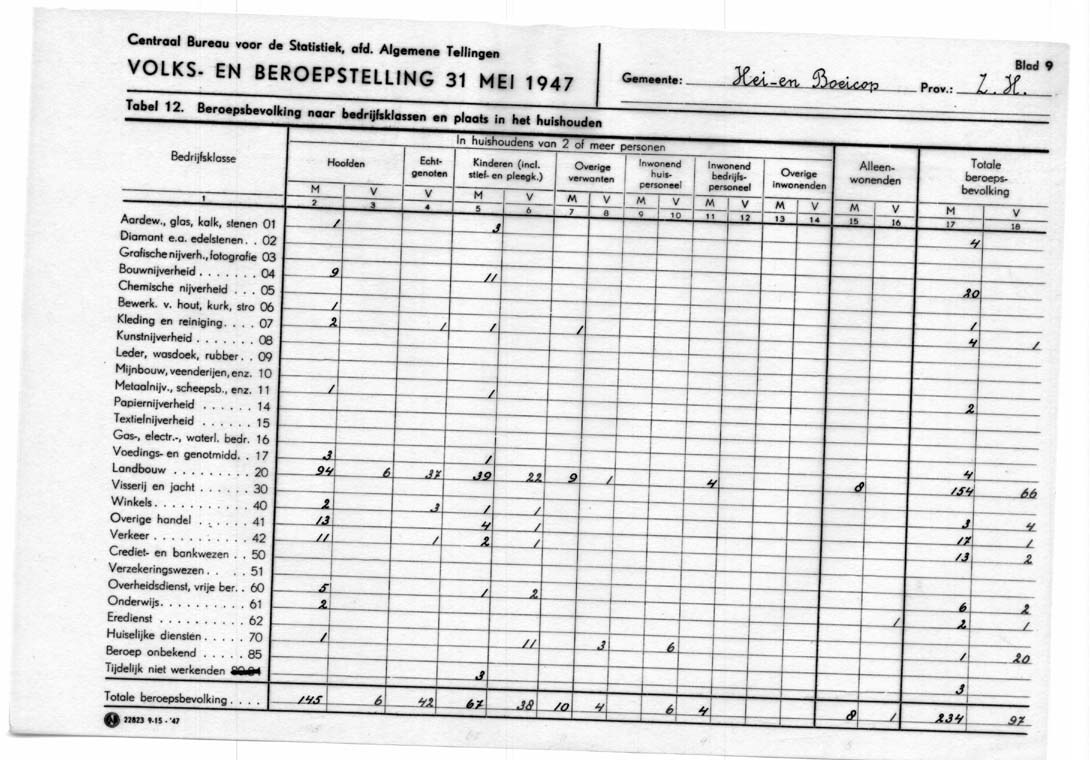 Centraal Bureau voor de Statistiek, afd. Algemene Tellingen
VOLKS- EN BEROEPSTELLING 31 MEI 1947
Gemeente: Hei-en Boeicop Prov.: Z. H.
Blad 9
Tabel 12. Beroepsbevolking naar bedrijfsklassen en plaats in het huishouden
In huishoudens van 2 of meer personen
Bedrijfsklasse Hoofden Echt-genoten Kinderen (incl. stief- en pleegk.) Overige verwanten Inwonend huis-personeel Inwonend bedrijfs-personeel Overige inwonenden Alleen-wonenden Totale beroeps-bevolking
M V V M V M V M V M V M V M V M V
1 2 3 4 5 6 7 8 9 10 11 12 13 14 15 16 17 18
Aardew., glas, kalk, stenen 01 1 3 4
Diamant e.a. edelstenen. . 02
Grafische nijverh., fotografie 03
Bouwnijverheid . . . . . . . 04 9 11 20
Chemische nijverheid . . . 05
Bewerk. v. hout, kurk, stro 06 1 1
Kleding en reiniging. . . . 07 2 1 1 1 4 1
Kunstnijverheid . . . . . . . 08
Leder, wasdoek, rubber. . 09
Mijnbouw, veenderijen, enz. 10
Metaalnijv., scheepsb., enz. 11 1 1 2
Papiernijverheid . . . . . . 14
Textielnijverheid . . . . . . 15
Gas-, electr.-, waterl. bedr. 16
Voedings- en genotmidd. . 17 3 1 4
Landbouw . . . . . . . . . 20 94 6 37 39 22 9 1 4 8 154 66
Visserij en jacht . . . . . . 30
Winkels. . . . . . . . . . . 40 2 3 1 1 3 4
Overige handel . . . . . . 41 13 4 1 17 1
Verkeer . . . . . . . . . . 42 11 1 2 1 13 2
Crediet- en bankwezen . . 50
Verzekeringswezen. . . . . 51
Overheidsdienst, vrije ber. . 60 5 1 2 6 2
Onderwijs. . . . . . . . . . 61 2 1 2 1
Eredienst . . . . . . . . . 62
Huiselijke diensten . . . . . 70 1 11 3 6 1 20
Beroep onbekend . . . . . 85
Tijdelijk niet werkenden 3 3
Totale beroepsbevolking . . . . 145 6 42 67 38 10 4 6 4 8 1 234 97
22823 9-15-'47